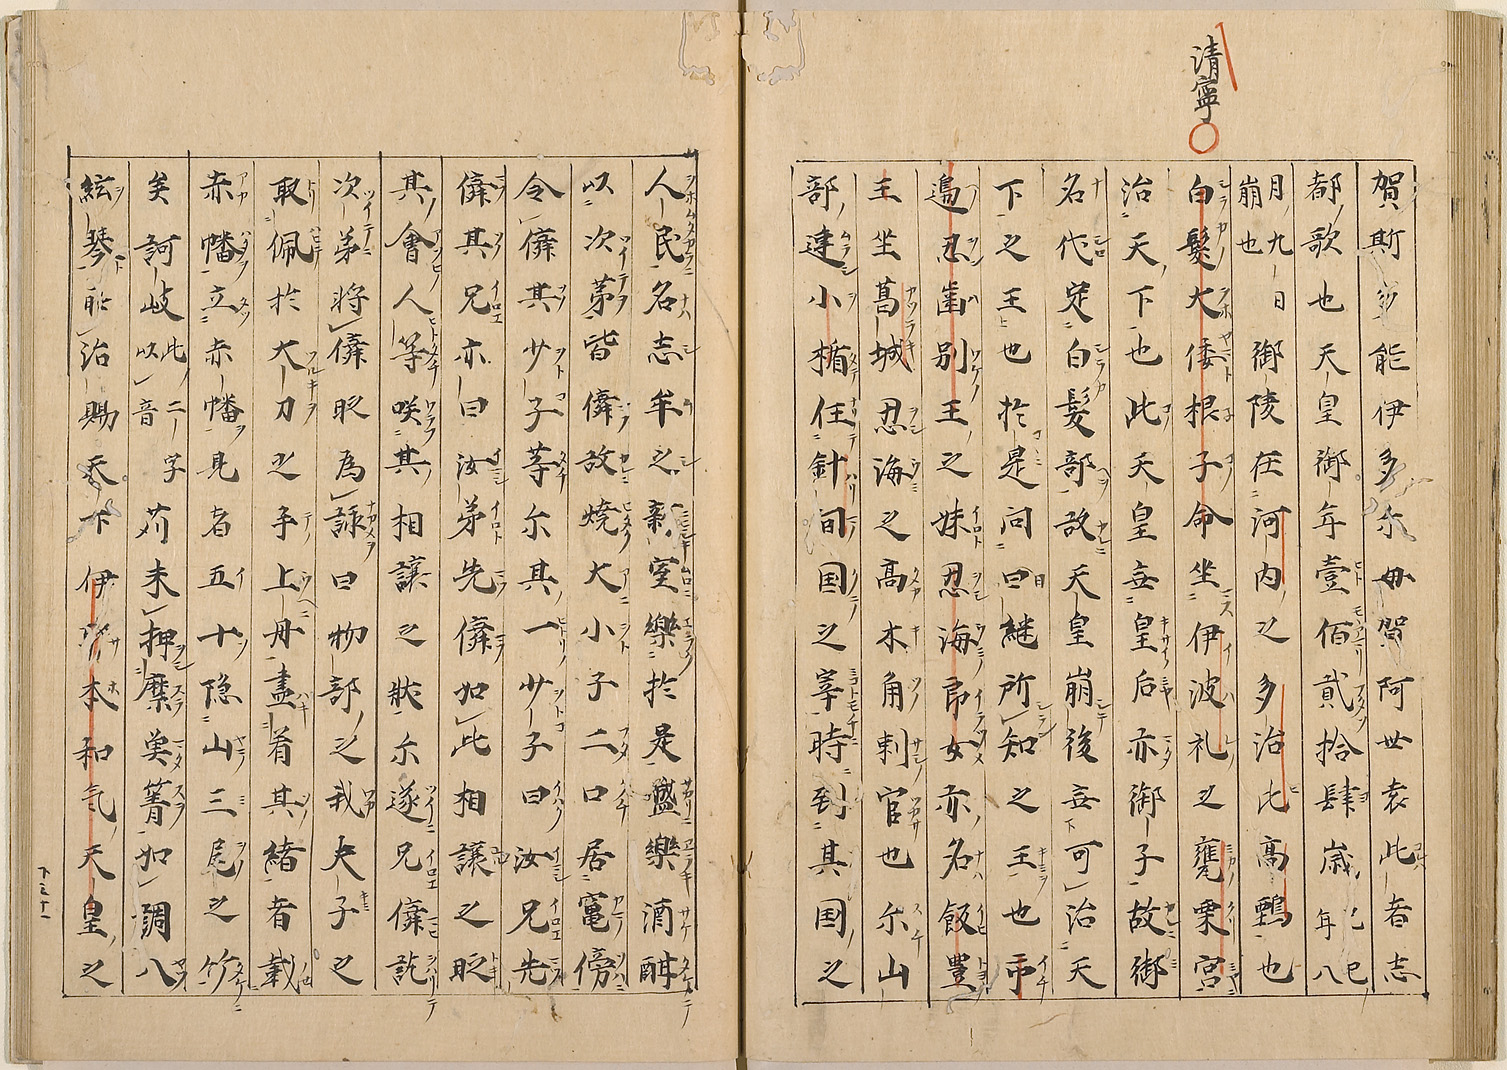 清寧
賀斯多能伊多尓母賀阿世袁此者志
都歌也天皇御年壹佰貳拾肆歳己巳年八
月九日崩也御陵在河内之多治比高鸇也
白髮大倭根子命坐伊波礼之甕栗宮
治天下也此天皇無皇后亦御子故御
名代定白髮部故天皇崩後無可治天
下之王也於是問日継所知之王也市
邊忍齒別王之妹忍海郎女亦名飯豊
王坐葛城忍海之高木角刺宮也尓山
部連小楯任針間国之宰時到其国之
人民名志牟之新室樂於是盛樂酒酣
以次第皆儛故燒火小子二口居竈傍
令儛其少子等尓其一少子曰汝兄先
儛其兄亦曰汝弟先儛如此相讓之時
其會人等咲其相讓之状尓遂兄儛訖
次弟将儛時為詠曰物部之我夫子之
取佩於大刀之手上丹畫著其緒者載
赤幡立赤幡見者五十隠山三尾之竹
矣訶岐此二字以音苅末押縻魚簀如調八
絃琴所治賜天下伊本和氣天皇之
下三十一